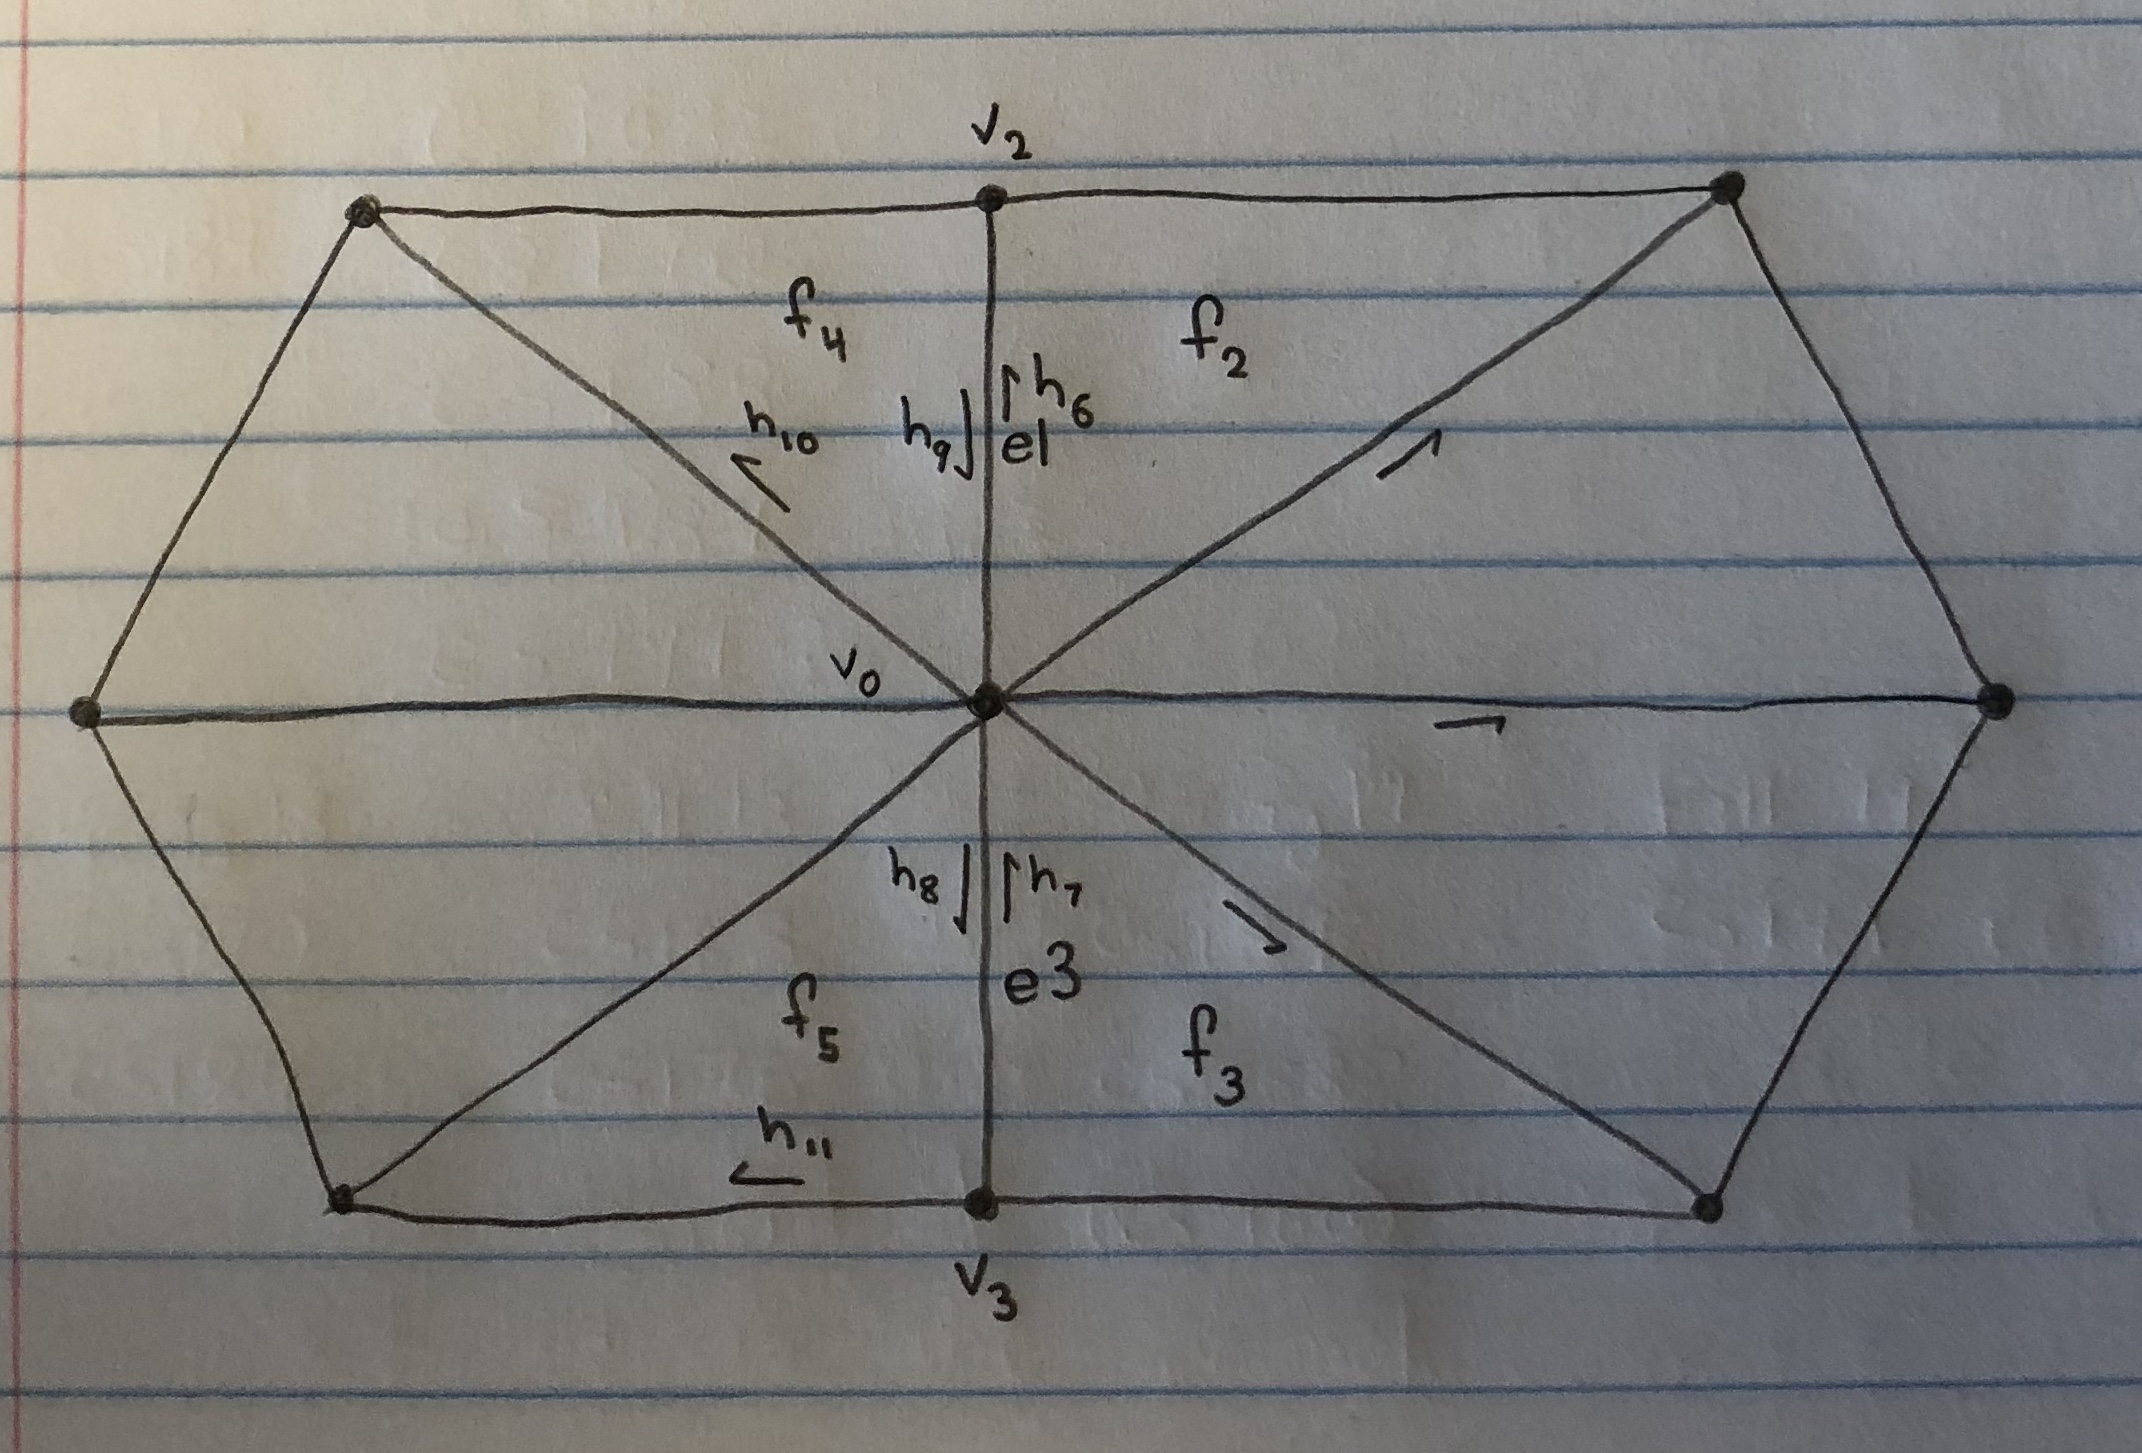 v2
f4
f2
h10
h9
h6
e1
v0
h8
h7
e3
f5
f3
h11
v3